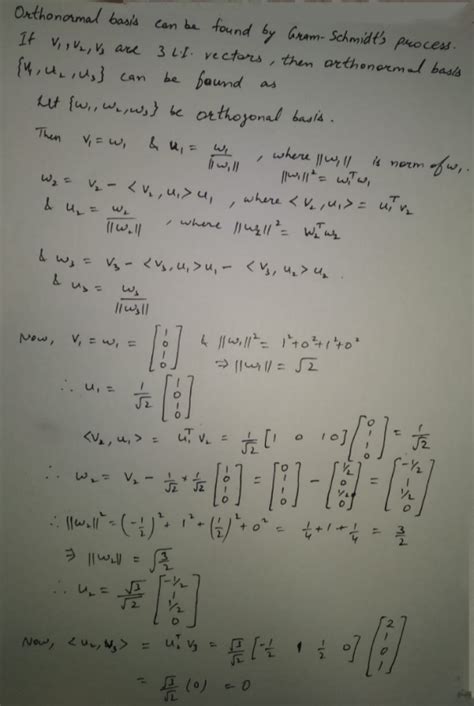 Orthonormal basis can be found by Gram-Schmidt's process.
If v₁, v₂, v₃ are 3 L.I. vectors, then orthonormal basis
{u₁, u₂, u₃} can be found as
Let {w₁, w₂, w₃} be orthogonal basis.
Then v₁ = w₁ & u₁ = w₁/||w₁||, where ||w₁|| is norm of w₁.
||w₁||² = w₁ᵀw₁
w₂ = v₂ - <v₂, u₁> u₁, where <v₂, u₁> = u₁ᵀv₂
& u₂ = w₂/||w₂||, where ||w₂||² = w₂ᵀw₂
& w₃ = v₃ - <v₃, u₁> u₁ - <v₃, u₂> u₂.
& u₃ = w₃/||w₃||
Now, v₁ = w₁ = [1 0 1 0] & ||w₁||² = 1²+0²+1²+0²
⇒ ||w₁|| = √2
∴ u₁ = 1/√2 [1 0 1 0]
<v₂, u₁> = u₁ᵀ v₂ = 1/√2 [1 0 1 0] [0 1 1 0] = 1/√2
∴ w₂ = v₂ - 1/√2 * 1/√2 [1 0 1 0] = [0 1 1 0] - [1/2 0 1/2 0] = [-1/2 1 1/2 0]
∴ ||w₂||² = (-1/2)² + 1² + (1/2)² + 0² = 1/4 + 1 + 1/4 = 3/2
⇒ ||w₂|| = √3/2
∴ u₂ = √3/√2 [-1/2 1 1/2 0]
Now, <u₂, w₃> = u₂ᵀ v₃ = √3/√2 [-1/2 1 1/2 0] [2 1 0 1]
= √3/√2 (0) = 0